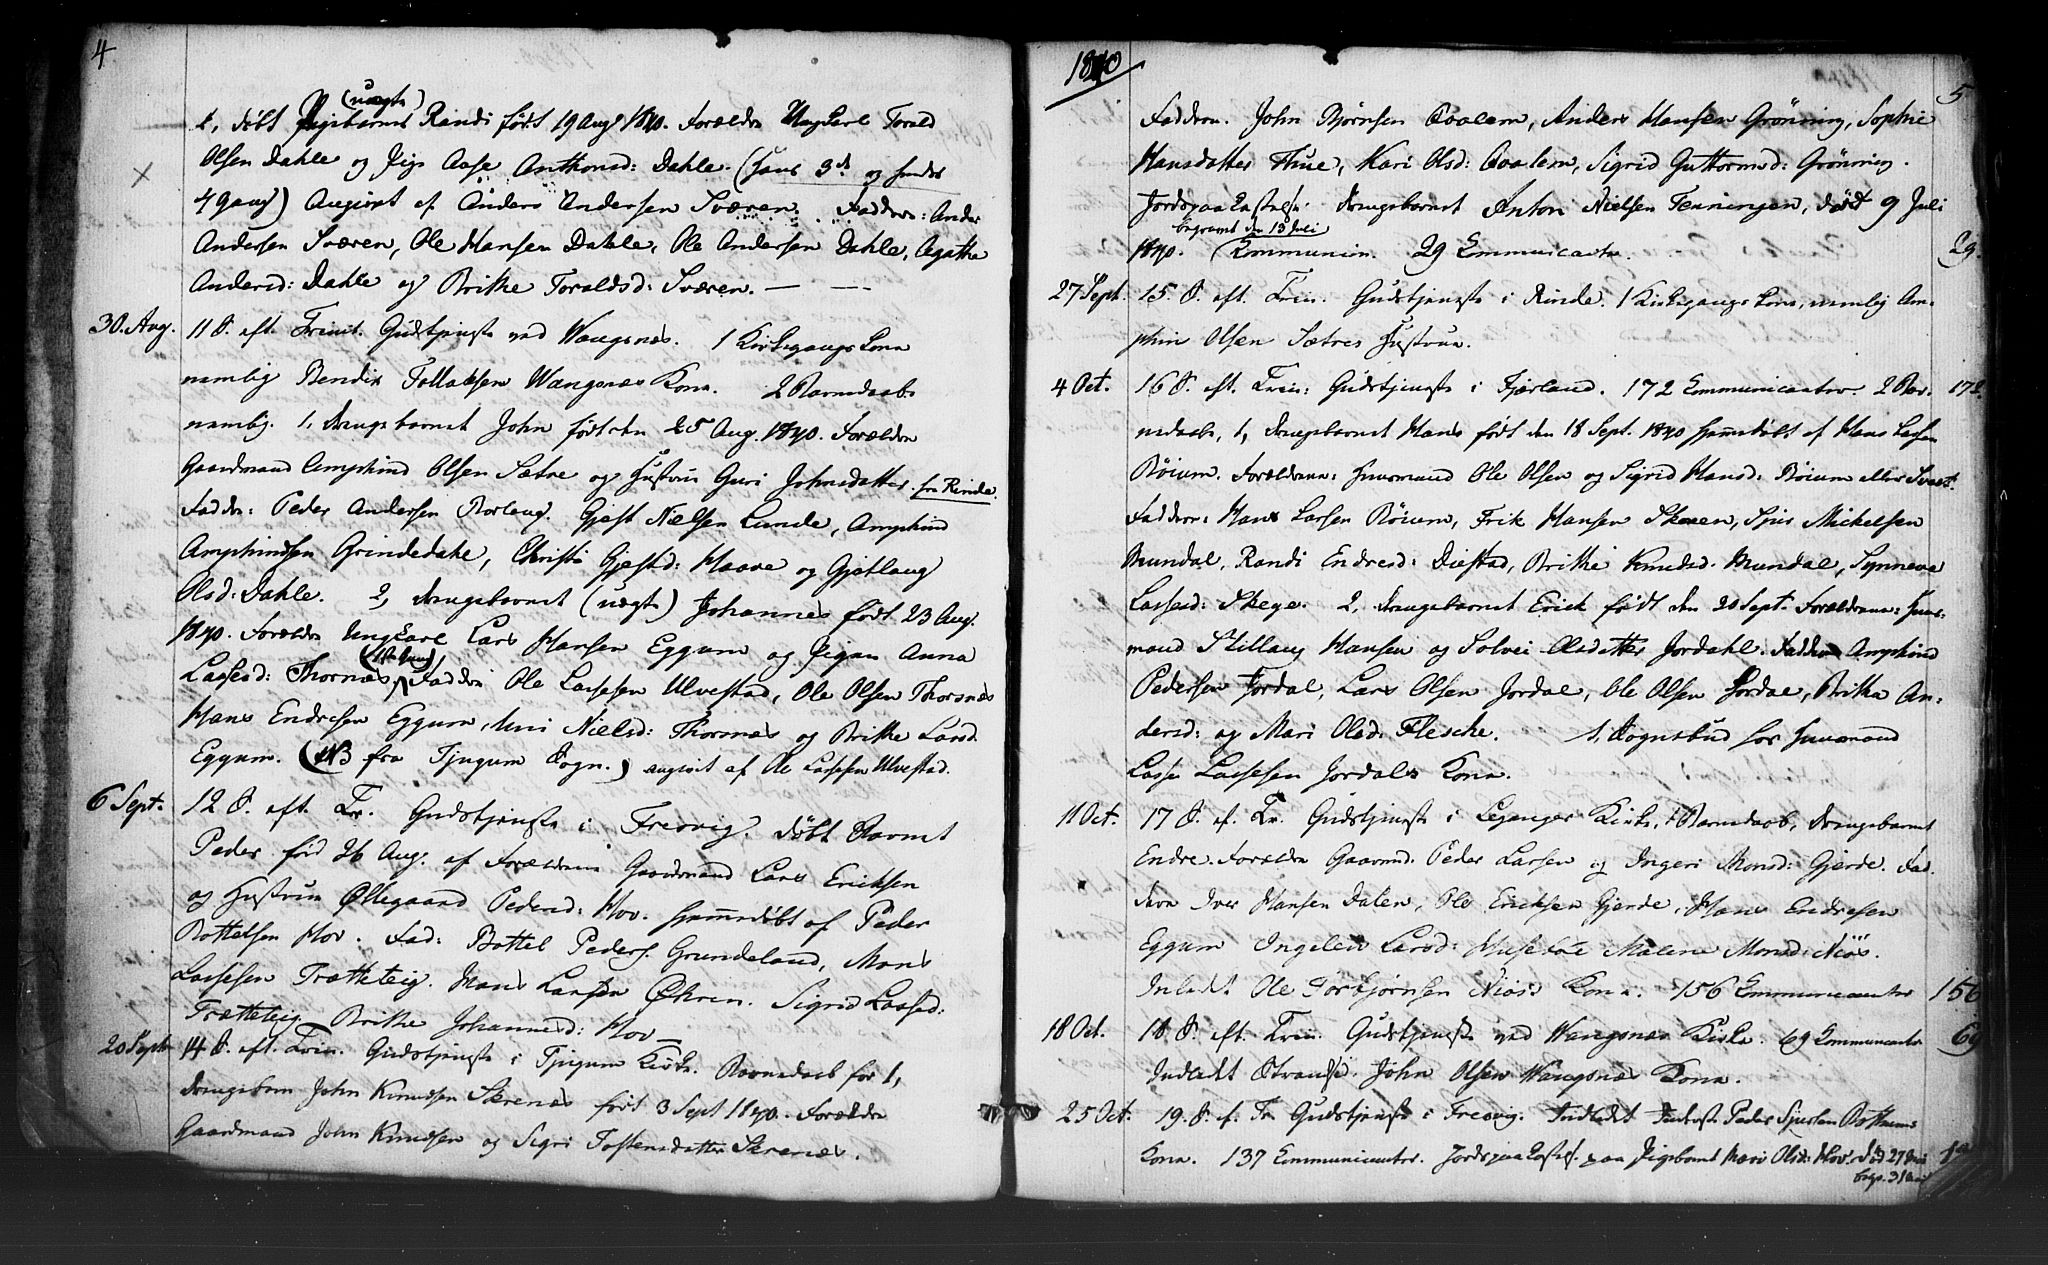 4
2, døbt Pigebarnet (uægte) Randi født 19 Aug 1840. Forældre Ungkarl Torald
Olsen Dahle og Pige Aase Anthonsd: Dahle. (hans 3d og hendes
4 gang) Angivet af Anders Andersen Sværen. Faddere: Anders
Andersen Sværen, Ole Hansen Dahle, Ole Andersen Dahle, Agathe
Andersd: Dahle og Brithe Toraldsd: Sværen. — —
30. Aug. 11 S. eft. Trinit. Gudstjeneste ved Wangsnæs. 1 Kirkegangs Kona
nemlig Bendix Tollaksen Wangsnæs Kona. 2 Barnedaab
nemlig. 1, Drengebarnet John født den 25 Aug. 1840. Forældre
Gaardmand Amphind Olsen Sætre og Hustrue Guri Johnsdatter fra Rinde.
Faddere: Peder Andersen Borlaug. Gjest Nielsen Lunde, Amphind
Amphindsen Grindedahl, Christi Gjestsd: Haave og Gjøtlaug
Olsd: Dahle. 2, Drengebarnet (uægte) Johannes født 23 Aug.
1840. Forældre Ungkarl Lars Hansen Eggum og Pigen Anna
Lassesd: Thornæs, Faddere Ole Lassesen Ulvestad, Ole Olsen Thorsnæs
Hans Endresen Eggum, Uni Nielsd: Thorsnæs og Brithe Larsd.
Eggum. (NB fra Tjugum Sogn.) angivet af Ole Lassesen Ulvestad.
6 Sept. 12 S. eft. Tr. Gudstjeneste i Fresvig. Døbt Barnet
Peder fød 26 Aug. af Forældrene Gaardmand Lars Ericksen
og Hustrue Øllegaard Pedersd: Hov. hjemmedøbt af Peder
Bottelsen Hov. Fad: Bottel Peders. Grundeland, Mons
Lassesen Trætteteig. Hans Larsen Øhren. Sigrid Lassesd:
Trætteteig Brithe Johannesd: Hov —
20 Sept. 14 S. eft. Trin. Gudstjeneste i Tjugum Kirke. Barnedaab for 1,
Drengebarn John Knudsen Skrenæs født 3 Sept 1840. Forældre
Gaardmand John Knudsen og Sigri Tostensdatter Skrenæs.
1840
5
Faddere. John Bjørnsen Qvalem, Anders Hansen Grønning, Sophie
Hansdatter Thue, Kari Olsd: Qvalem, Sigrid Guttormsd: Grønning.
Jordspaakastelse: Drengebarnet Anton Nielsen Tenningen, død 9 Juli
begravet den 13 Juli
1840. Kommunion. 29 Communicanter. 29.
27 Sept. 15. S. eft. Trin. Gudstjeneste i Rinde. 1 Kirkegangs Kona, nemlig Am-
phin Olsen Sætres Hustrue.
4 Oct. 16 S. eft. Trin: Gudstjeneste i Fjærland. 172 Communicanter. 2 Bar- 172.
nedaab, 1, Drengebarnet Hans født den 18 Sept. 1840 hjemmedøbt af Hans Larsen
Bøium. Forældrene: Huusmand Ole Olsen og Sigrid Hansd: Bøium eller
Faddere: Hans Larsen Bøium, Erik Hansen Skeen, Sjur Michelsen
Mundal, Randi Endresd: Distad, Brithe Knudsd. Mundal, Synneva
Lassesd: Skege. 2, Drengebarnet Erick født den 20 Sept. Forældrene: Huus-
mand Stillaug Hansen og Solvei Olsdatter Jordahl. Faddere Amphind
Pedersen Jordal, Lars Olsen Jordal, Ole Olsen Jordal, Britha An-
dersd: og Mari Olsd: Flesche. 1, Sognebud for Huusmand
Lasse Lassesen Jordals Kona.
11 Oct. 17 S. ef. Tr. Gudstjeneste i Leganger Kirke, 1 Barnedaab, Drengebarnet
Endre. Forældre Gaardmd: Peder Larsen og Ingeri Monsd: Gjerde. Fad-
dere Iver Hansen Dalen, Ole Ericksen Gjerde, Hans Endresen
Eggum Ingeleiv Larsd: Husebøe Malene Monsd: Niøs.
Inledt Ole Torbjørnsen Niøss Kona. 156 Communicanter 156
18 Oct. 18 S. eft. Trin. Gudstjeneste ved Wangsnæs Kirke. 69 Communicanter 69
Indledt Strands: John Olsen Wangsnæs Kona.
25 Oct. 19. S. ef. Tr Gudstjeneste i Fresvig. Indledt Peder Sjursen Bothuns
Kona. 137 Communicanter. Jordspaakastels. paa Pigebarnet Mari Olsd: Hov, død 27
begr. 31